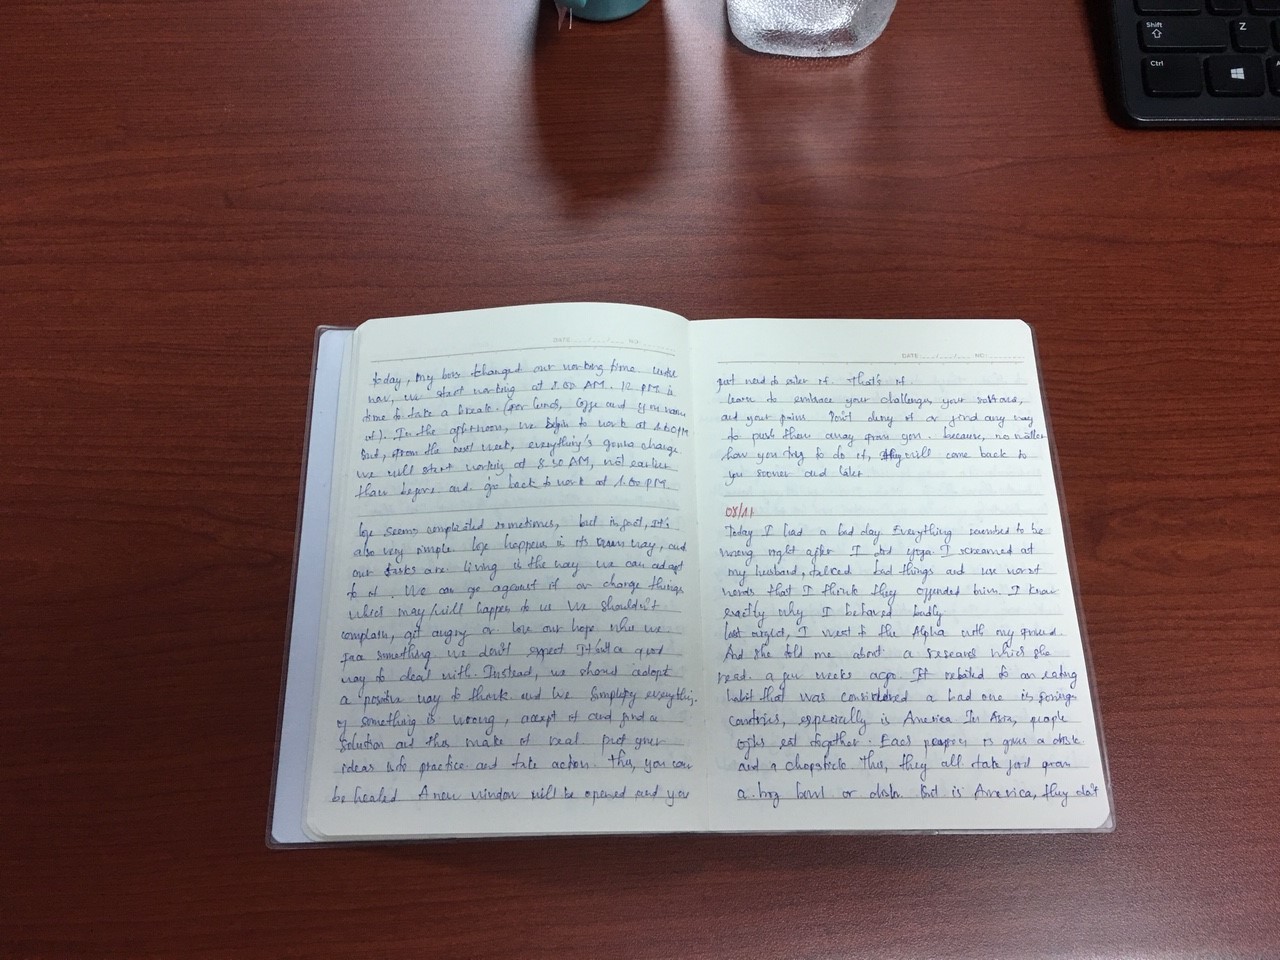 Shift
Z
Ctrl
DATE NO:
today, my boss changed our working time. Until
now, we start working at 8.00 AM. 12 PM is
time to take a break (for lunch, coffee and if you
). In the afternoon, we begin to work at 1.00PM
But, from the next week, everything's gonna change
we will start working at 8.30 AM, not earlier
than before. and go back to work at 1.00 PM
life seems complicated sometimes, but in fact, it's
also very simple. life happens in its own way, and
our tasks are living in the way we can adapt
to it. We can go against it or change things
which may/will happen to us We shouldn't
complain, get angry or lose our hope when we
face something we don't expect It isn't a good
way to deal with. Instead, we should adopt
a positive way to think and we simplify everything.
if something is wrong, accept it and find a
solution and then make it real. put your
ideas into practice and take action. Then, you can
be healed A new window will be opened and you
DATE NO:
just need to enter it. That's it.
learn to embrace your challenges, your
and your pains Don't deny it or find any way
to push them away from you. because, no matter
how you try to do it, they will come back to
you sooner and later
08/11
Today I had a bad day Everything seemed to be
wrong right after I did yoga. I screamed at
my husband, talked bad things and use worst
words that I think they offended him. I know
exactly why I behaved badly.
last night, I went to the Alpha with my friend.
And she told me about a research which she
read a few weeks ago. It related to an eating
habit that was considered a bad one in foreign
countries, especially in America In Asia, people
often eat together. Each person is given a dish
and a chopstick Then, they all take food from
a big bowl or dish. But in America, they don't